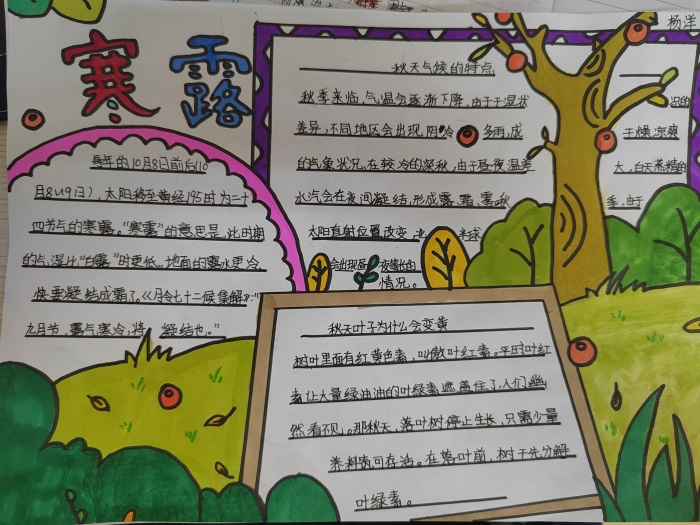 杨洋
寒露
每年的10月8日前后(10
月8~9日)，太阳移至黄经195时为二十
四节气的寒露。“寒露”的意思是，此时期
的气温比“白露”时更低，地面的露水更冷，
快要凝结成霜了。《月令七十二候集解》：“
九月节，露气寒冷，将 凝结也。”
秋天气候的特点
秋季来临，气温会逐渐下降，由于干湿状 温的
差异，不同地区会出现阴冷 多雨，或 干燥凉爽
的气象状况，在较冷的深秋，由于昼夜温差 大，白天蒸精的
水汽会在夜间凝结，形成露、霜、雾，秋 季，由于
太阳直射位置改变， 半球
会出现昼 夜长的
情况。
秋天叶子为什么会变黄
树叶里面有红黄色素，叫做叶红素。平时叶红
素让大量绿油油的叶绿素遮盖住了，人们
然看不见。那秋天，落叶树停止生长，只需少量
养料 可存活。在落叶前，树于先分解
叶绿素。